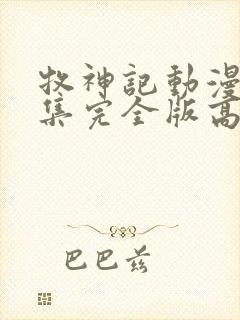 牧神記動漫
集完全版高
巴巴兹